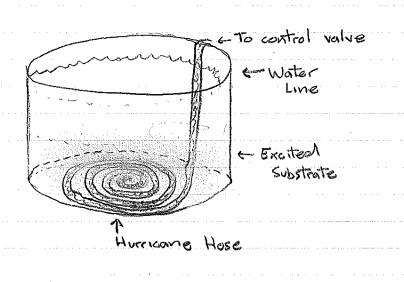 To control valve
Water
Line
Excited
Substrate
Hurricane Hose